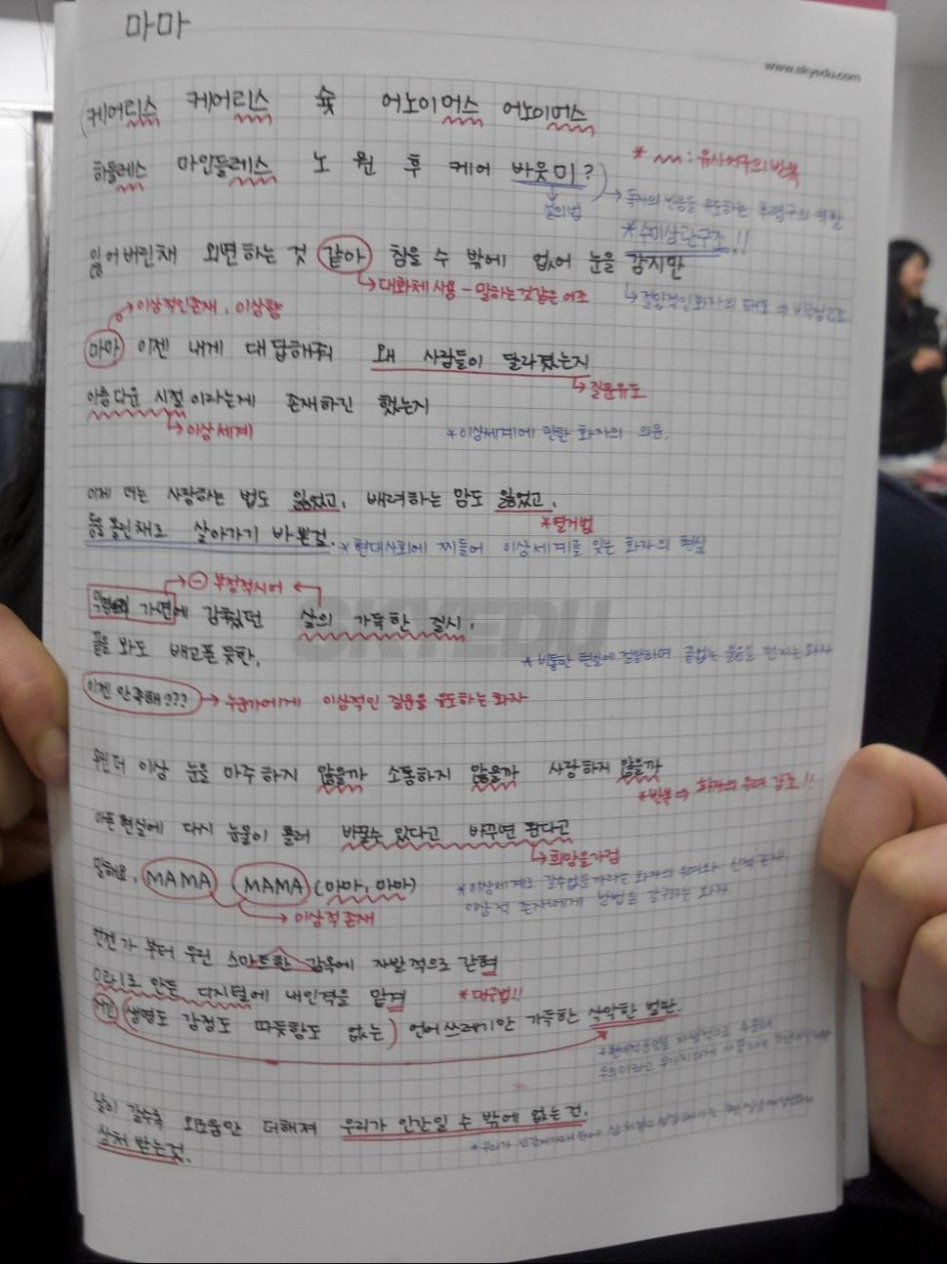 마마
www.skyedu.com
(케어리스 케어리스 슛 어노이머스 어노이머스
* : 유사어구의 반복
하틀레스 마인들레스 노 원 후 케어 바웃미?)
설의법
→ 독자의 반응을 유도하는 후렴구의 역할
*수미상관구조!!
잃어버린채 외면하는 것 같아 참을 수 밖에 없어 눈을 감지만
→대화체 사용 - 말하는것같은 어조
→절망적인화자의 태도 ⇒
→이상적인존재, 이상향
마마 이젠 내게 대답해줘 왜 사람들이 달라졌는지
→질문유도
아름다운 시절 이라는게 존재하긴 했는지
→이상세계
*이상세계에 반한 화자의 의문.
이제 더는 사랑하는 법도 잃었고, 배려하는 맘도 잃었고,
*열거법
등을 돌린채로 살아가기 바쁜걸.
*현대사회에 찌들어 이상세계를 잊는 화자의 현실
→⊖ 부정적시어←
익명의 가면에 감췄던 살의 가득한 질시,
SKYEDU
끝을 봐도 배고픈 듯한,
*비통한 현실에 절망하며 끝없는 물음을 던지는 화자
이젠 만족해???
→ 누군가에게 이상적인 질문을 유도하는 화자
우린 더 이상 눈을 마주 하지 않을까 소통하지 않을까 사랑하지 않을까
*반복⇒ 화자의 우려 강조!!
아픈 현실에 다시 눈물이 흘러 바꿀수 있다고 바꾸면 된다고
→희망을가정
말해요, MAMA MAMA (마마, 마마)
→이상적존재
*이상세계로 갈수없을거라는 화자의 우려와
이상적 존재에게 방법을 갈구하는 화자
언젠가 부터 우린 스마트한 감옥에 자발적으로 갇혀
0과1로 만든 디지털에 내인격을 맡겨
*대구법!!
거긴 (생명도 감정도 따듯함도 없는) 언어쓰레기만 가득한 삭막한 벌판.
날이 갈수록 외로움만 더해져 우리가 인간일 수 밖에 없는 건.
상처 받는것.